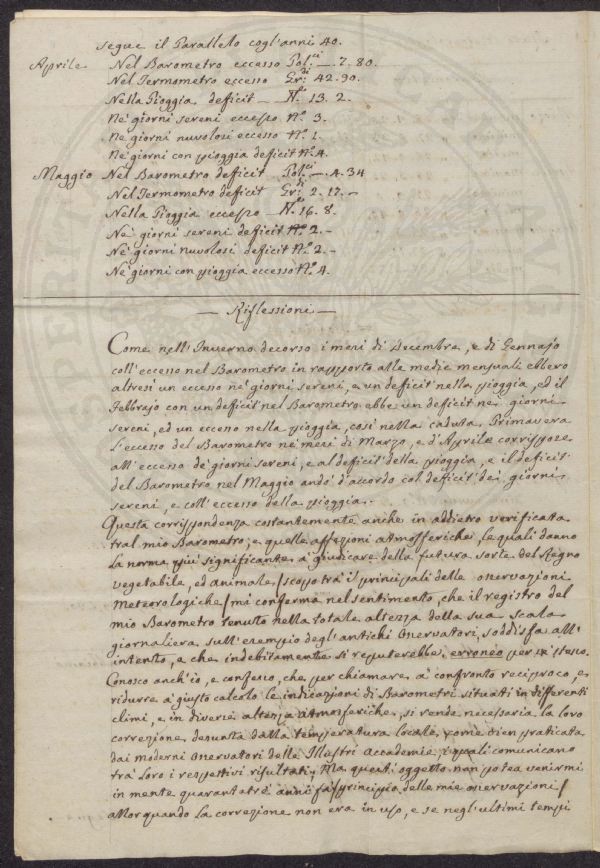 segue il Parallelo cogl'anni 40.
Aprile Nel Barometro eccesso Pol:ci —. 7. 80.
Nel Termometro eccesso Gr:di 42. 90.
Nella Pioggia deficit — 13. 2.
Ne' giorni sereni eccesso N.° 3.
Ne giorni nuvolosi eccesso N.° 1.
Ne' giorni con pioggia deficit N.° 4.
Maggio Nel Barometro deficit Pol:ci —. 4. 34
Nel Termometro deficit Gr:di 2. 17. —
Nella Pioggia eccesso — 16. 8.
Ne' giorni sereni deficit N.° 2. —
Ne' giorni nuvolosi deficit N.° 2. —
Ne' giorni con pioggia eccesso N.° 4.
— Riflessioni —
Come nell'Inverno decorso i mesi di Decembre, e di Gennajo
coll'eccesso nel Barometro in rapporto alle medie mensuali ebbero
altresì un eccesso ne' giorni sereni, e un deficit nella pioggia, ed il
Febbrajo con un deficit nel Barometro ebbe un deficit ne' giorni
sereni, ed un eccesso nella pioggia, così nella caduta Primavera
l'eccesso del Barometro ne' mesi di Marzo, e d'Aprile corrispose
all'eccesso de' giorni sereni, e al deficit della pioggia, e il deficit
del Barometro nel Maggio andò d'accordo col deficit dei giorni
sereni, e coll'eccesso della pioggia.
Questa corrispondenza costantemente anche in addietro verificata
tral mio Barometro, e quelle affezioni atmosferiche, le quali danno
la norma più significante a giudicare della futura sorte del Regno
vegetabile, ed animale /scopo tra i principali delle osservazioni
Meteorologiche/ mi conferma nel sentimento, che il registro del
mio Barometro tenuto nella totale altezza della sua scala
giornaliera sull'esempio degl'antichi Osservatori, soddisfa all'
intento, e che indebitamente si reputerebbe erroneo per se stesso.
Conosco anch'io, e confesso, che per chiamare a confronto reciproco, e
ridurre a giusto calcolo le indicazioni di Barometri situati in differenti
climi, e in diverse altezze atmosferiche, si rende necessaria la loro
correzione desunta dalla temperatura locale, come vien praticata
dai moderni Osservatori delle Illustri Accademie, i quali comunicano
tra loro i respettivi risultati; Ma quest'oggetto non potea venirmi
in mente quarantatrè anni fa /principio delle mie osservazioni/
allorquando la correzione non era in uso, e se negl'ultimi tempi